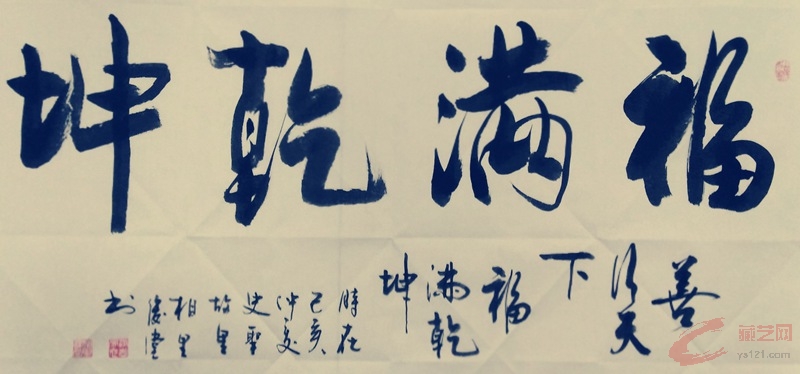 福满乾坤
善
行天
下
福
满乾
坤
時在
己亥
仲夏
史聖
故里
相里
书
藏艺网
ya121.com